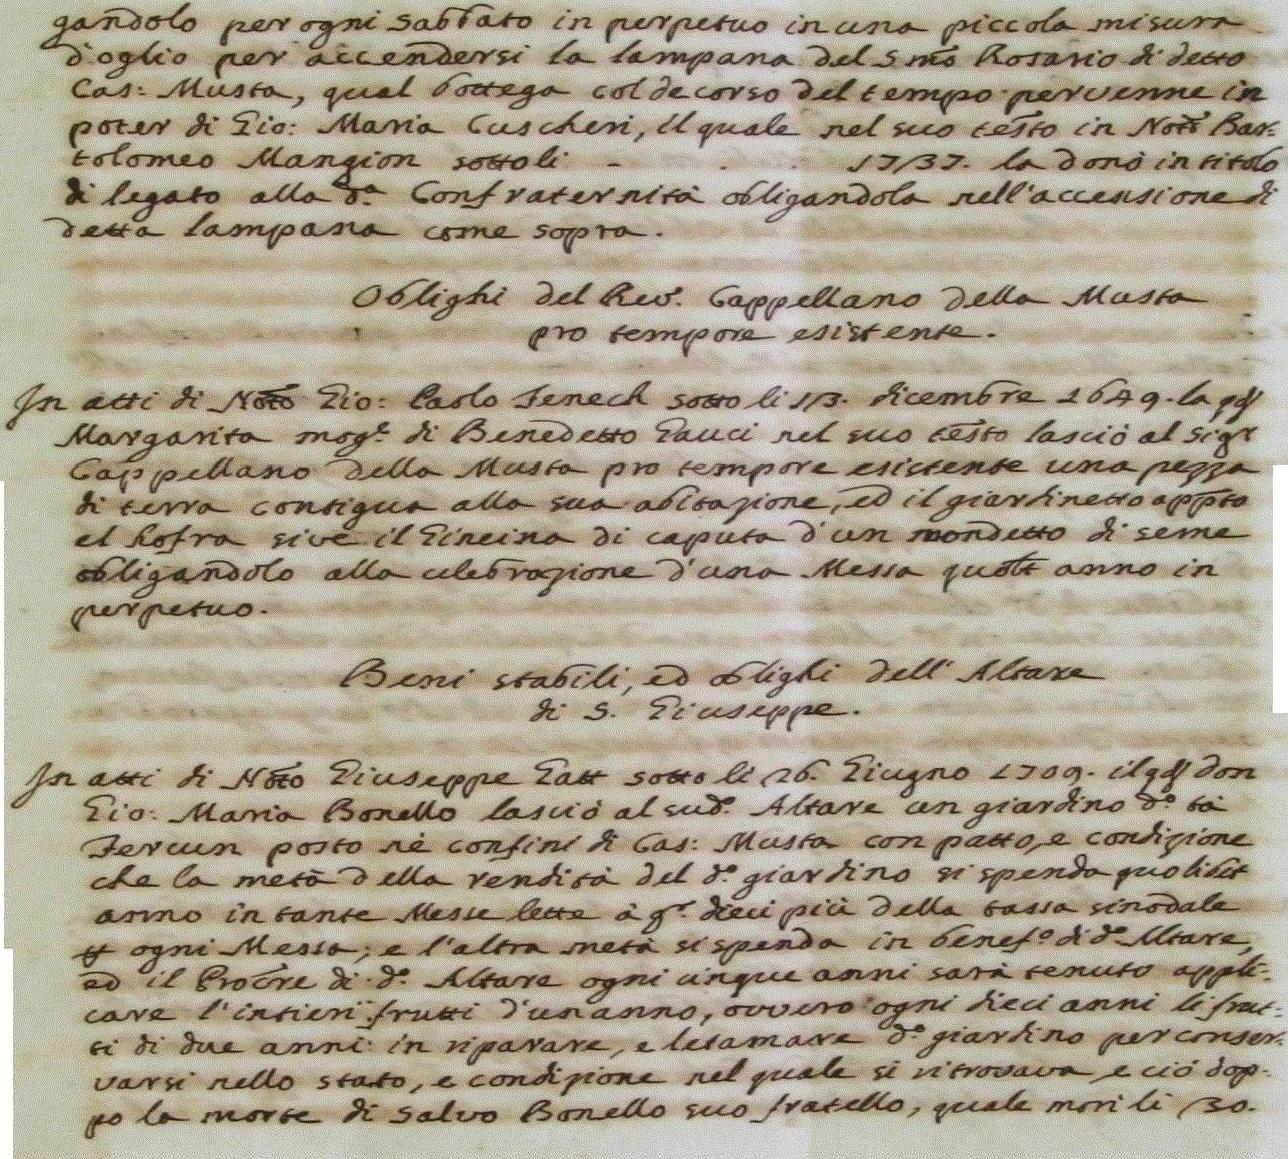 gandolo per ogni sabbato in perpetuo in una piccola misura
d'oglio per accendersi la lampana del Smõ Rosario di detto
Cas: Musta, qual bottega col decorso del tempo pervenne in
poter di Gio: Maria Cuscheri, il quale nel suo testo in Noto Bar:
tolomeo Mangion sotto li - . . 1737. la donò in titolo
di legato alla d.ª Confraternità obligandola nell'accensione di
detta lampana come sopra.
Oblighi del Rev. Cappellano della Musta
pro tempore esistente.
In atti di Noto Gio: Paolo Fenech sotto li 13. dicembre 1649. la qd
Margarita mog.e di Benedetto Gauci nel suo testo lasciò al Sigr
Cappellano della Musta pro tempore esistente una pezza
di terra contigua alla sua abitazione, ed il giardinetto appto
el hofra sive il Gineina di caputa d'un mondetto di seme
obligandolo alla celebrazione d'una Messa quolt anno in
perpetuo.
Beni stabili, ed oblighi dell'Altare
di S. Giuseppe.
In atti di Noto Giuseppe Gatt sotto li 26. Giugno 1709. il qd don
Gio: Maria Bonello lasciò al sud.o Altare un giardino d.o ta
Fercun posto nè confini di Cas: Musta con patto, e condizione
che la metà della rendita del d.o giardino si spenda quolibet
anno in tante Messe lette à gr. dieci più della tassa sinodale
ogni Messa; e l'altra metà si spenda in benef.o di d.o Altare,
ed il Procre di d.o Altare ogni cinque anni sarà tenuto appli:
care l'intieri frutti d'un anno, ovvero ogni dieci anni li frut:
ti di due anni in riparare, e letamare d.o giardino per conser:
varsi nello stato, e condizione nel quale si ritrovava, e ciò dop:
po la morte di Salvo Bonello suo fratello, quale morì li 30.